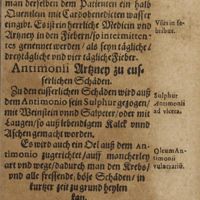 man derselben dem Patienten ein halb
Quentlein mit Cardobenedicten wasser
eingibt. Es ist in herrliche Medicin und
Artzney in den Fiebern / so intermitten-
tes genennet werden / als seyn tägliche /
dreytägliche und vier tägliche Fieber.
Antimonii Artzney zu eus-
serlichen Schäden.
Zu den eusserlichen Schäden wird auß
dem Antimonio sein Sulphur gezogen /
mit Weinstein und Salpeter / oder mit
Laugen / so auß lebendigem Kalck und
Aschen gemacht worden.
Es wird auch ein Oel auß dem An-
timonio zugerichtet / auff mancherley
art und wege / dardurch man den Krebs /
und alle fressende / böse Schäden / in
kurtzer zeit zu grund heylen
kan.
Vsus in fe-
bribus.
Sulphur
Antimonii
ad vlcera.
Oleum An-
timonii
vulnerariū.